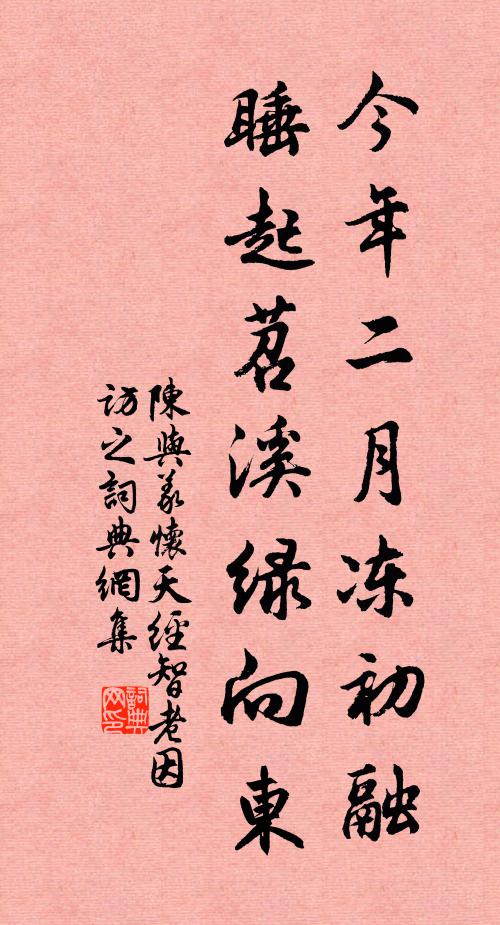 今年二月冻初融
睡起苕溪绿向東
陳與義懷天經智老因
訪之詞典網集
詞典
网印